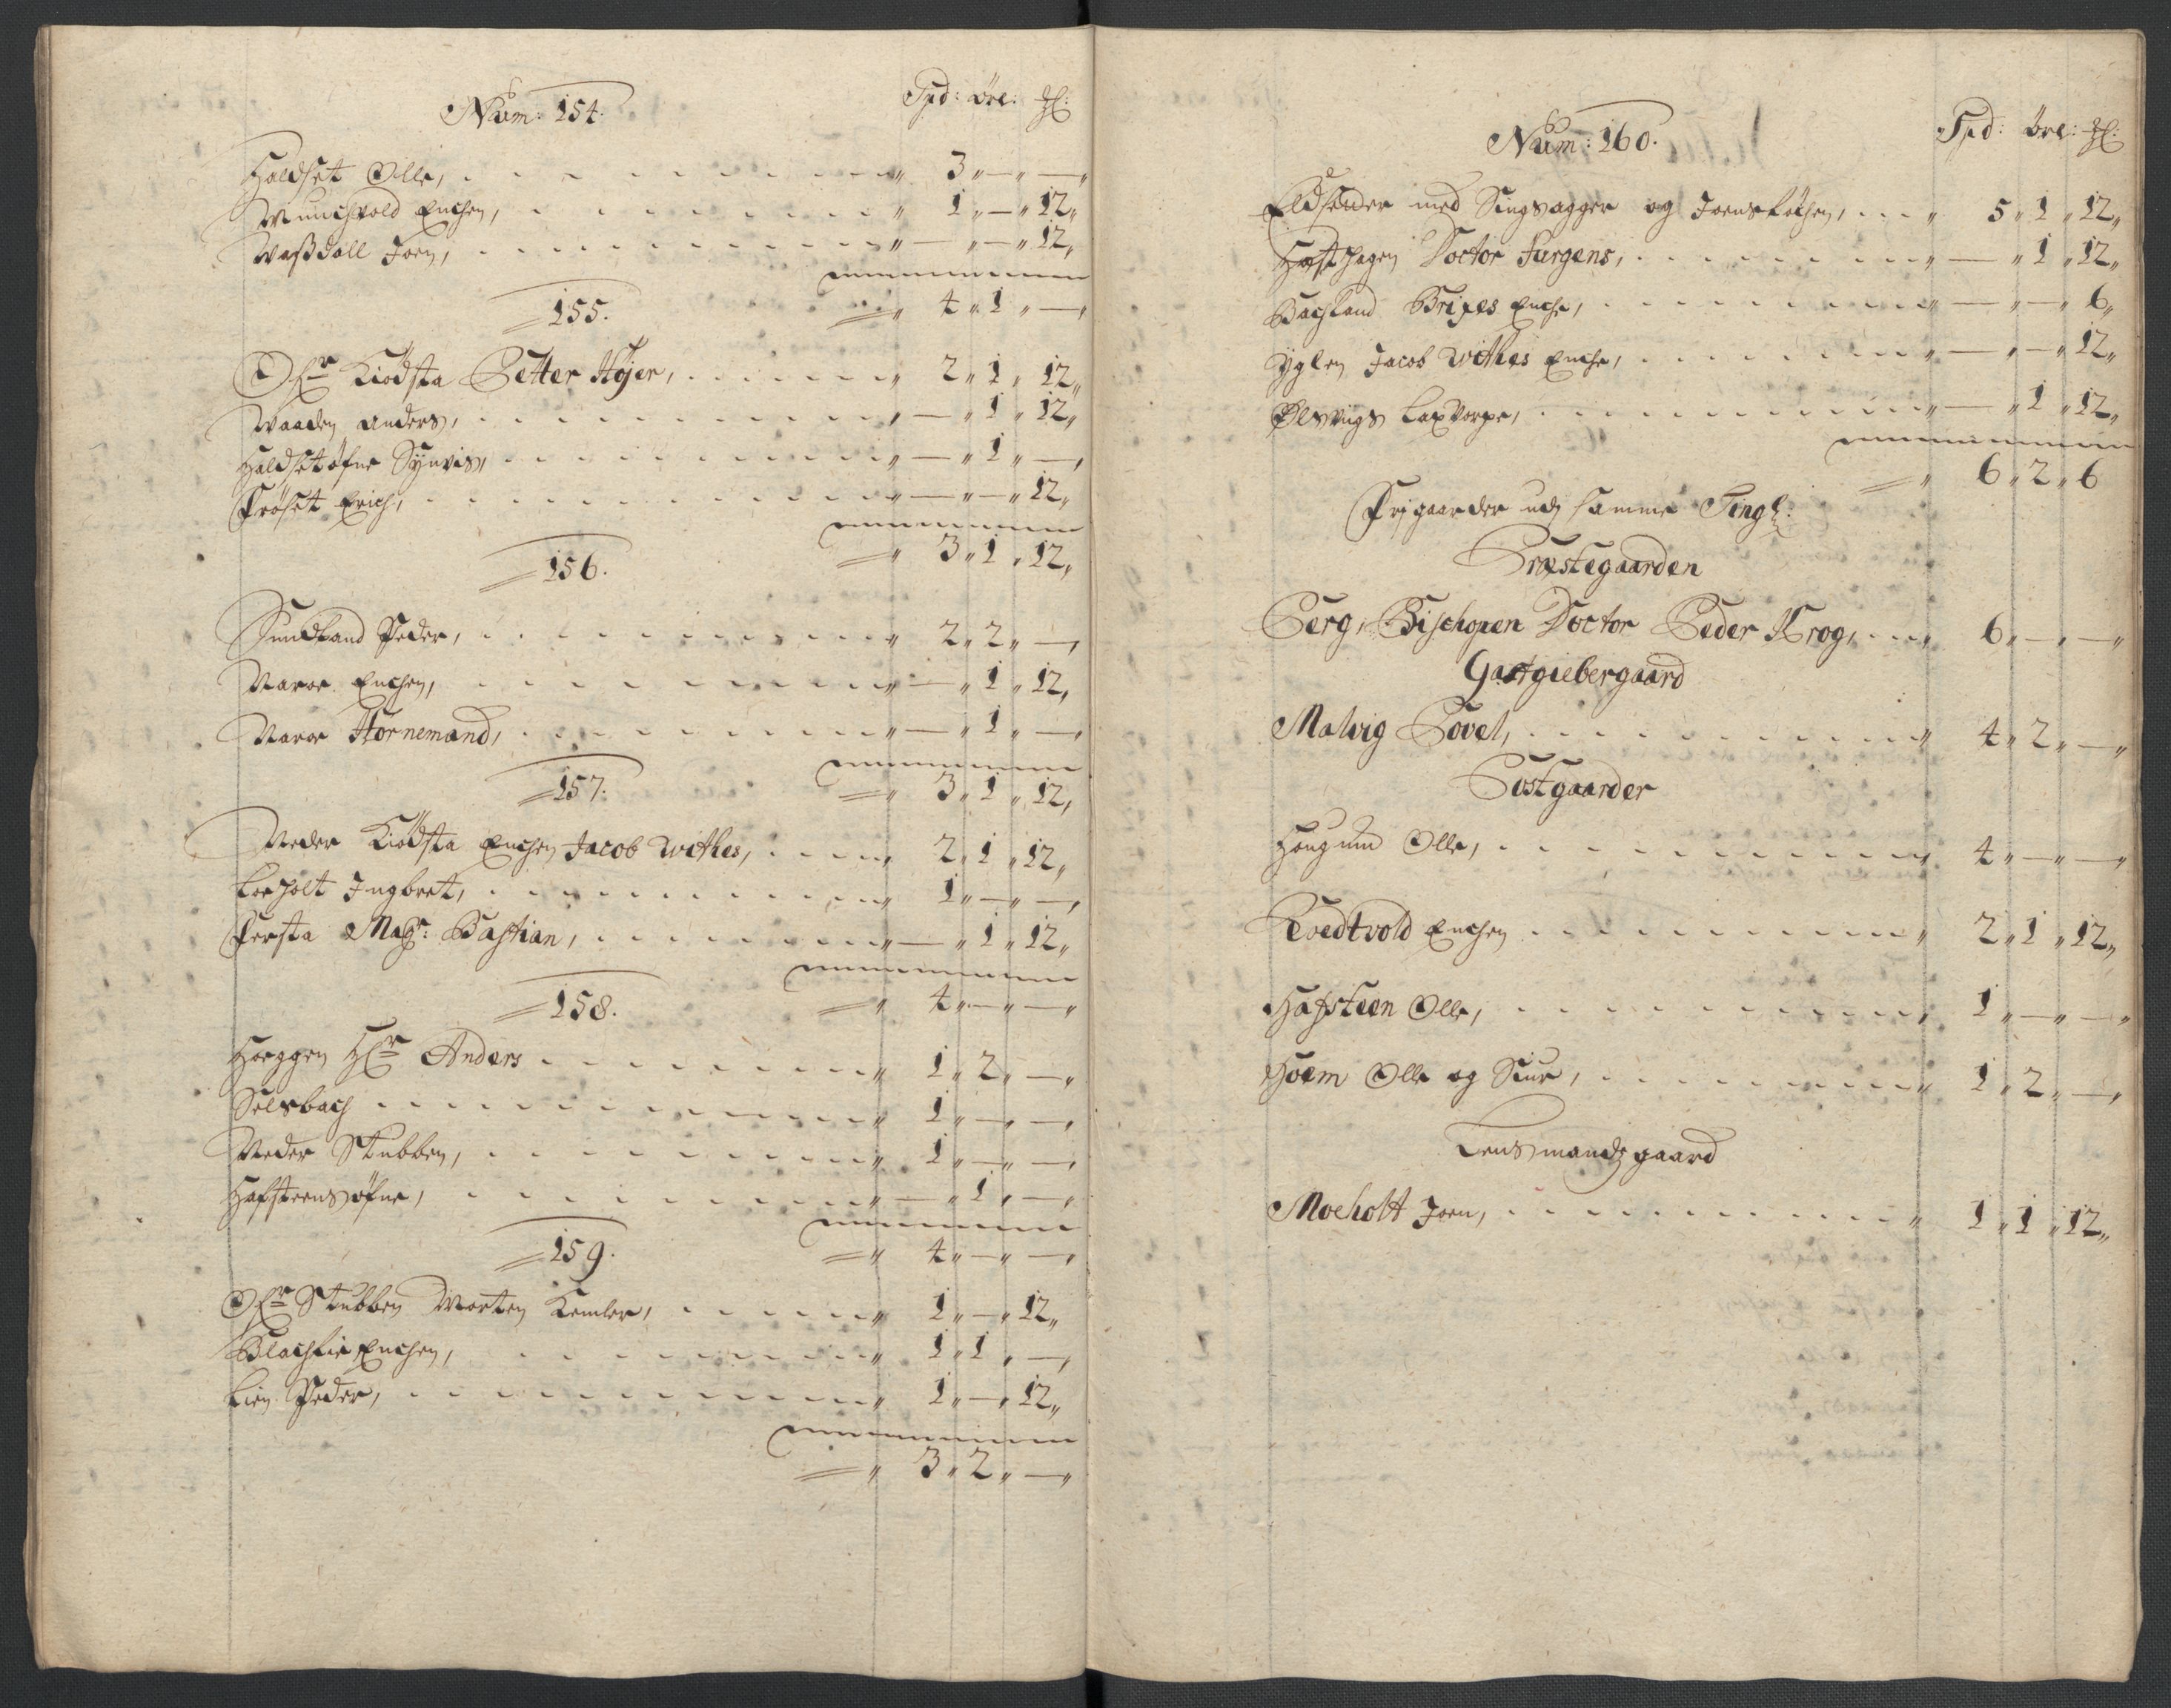 Num: 154. Spd: Øre: ʒl:
Haldset Olle, 3 „ — „ —
Munchvold Enchen, 1 „ — „ 12
Waßdall Joen, — „ — „ 12
155. 4 „ 1 „ —
Ofr Kiødsta Petter Høyer, 2 „ 1 „ 12
Waaden Anders, — „ 1 „ 12
Haldsetøfne Synvis, — „ 1 „ —
Frøset Erich, — „ — „ 12
156. 3 „ 1 „ 12
Sundland Peder, 2 „ 2 „ —
Naror Enchen, — „ 1 „ 12
Naror Hornemand, — „ 1 „ —
157. 3 „ 1 „ 12
Neder Kiødsta Enchen Jacob Withes, 2 „ 1 „ 12
Loeholt Ingbret, 1 „ — „ —
Fersta Magr: Bastian, — „ 1 „ 12
158. 4 „ — „ —
Horggen Hr Anders 1 „ 2 „ —
Selsbach 1 „ — „ —
Neder Stubben, 1 „ — „ —
Hafsteensøfne, — „ 1 „ —
159. 4 „ — „ —
Ofr Stubben Morten Kemler, 1 „ — „ 12
Blachlie Enchen, 1 „ 1 „ —
Lien Peder, 1 „ — „ 12
3 „ 2 „ —
Num: 160. Spd: Øre: ʒl:
med Singsagger og 5 „ 1 „ 12
Hasthagen Doctor Jurgens, — „ 1 „ 12
Bachland Brixes Enche, — „ — „ 6
Yglen Jacob Withes Enche, — „ — „ 12
Ølsvigs Laxvorpe, — „ 1 „ 12
6 „ 2 „ 6
Frjgaarder udj samme Tingl:
Præstegaarden
Berg, Bischopen Doctor Peder Krog, 6 „ — „ —
Gastgiebergaard
Malvig Povel, 4 „ 2 „ —
Postgaarder
Hougum Olle, 4 „ — „ —
Tvedtvold Enchen 2 „ 1 „ 12
Hafsteen Olle, 1 „ — „ —
Hoem Olle og Siur, 1 „ 2 „ —
Lensmandsgaard
Moeholt Joen, 1 „ 1 „ 12